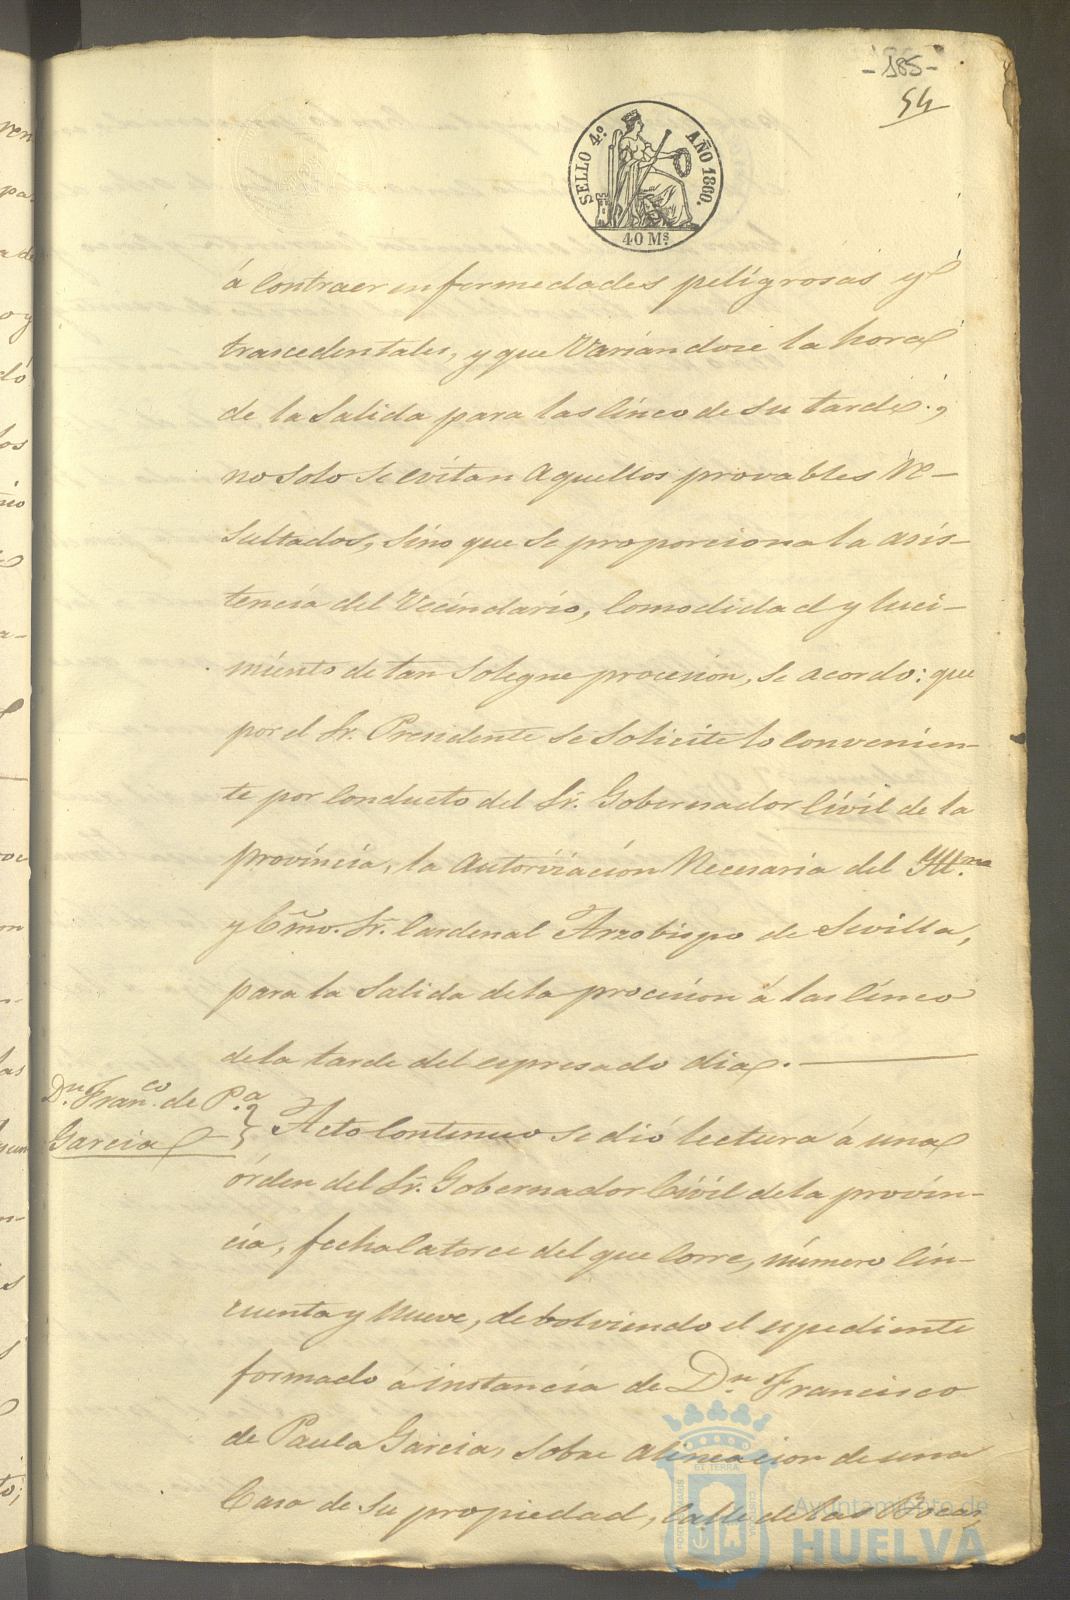 -185-
54
SELLO 4.º AÑO 1860.
40 Ms.
á contraer enfermedades peligrosas y
trascedentales, y que variándose la hora
de la salida para las cinco de su tarde,
no solo se evitan aquellos provables re-
sultados, sino que se proporciona la asis-
tencia del vecindario, comodidad y luci-
miento de tan solegne procesion, se acordo: que
por el Sr. Presidente se solicite lo convenien-
te por conducto del Sr. Gobernador Civil de la
provincia, la autorizacion necesaria del Ill.mo
y Emo. Sr. Cardenal Arzobispo de Sevilla,
para la salida de la procesion á las cinco
de la tarde del espresado dia.
Dn. Franco. de Pa.
Garcia
Acto contenuo se dió lectura á una
órden del Sr. Gobernador Civil de la provin-
cia, fecha catorce del que corre, número cin-
cuenta y nueve, debolviendo el espediente
formado á instancia de Dn. Francisco
de Paula Garcia, sobre alineacion de una
Casa de su propiedad, calle de las Bocas,
Ayuntamiento de
HUELVA